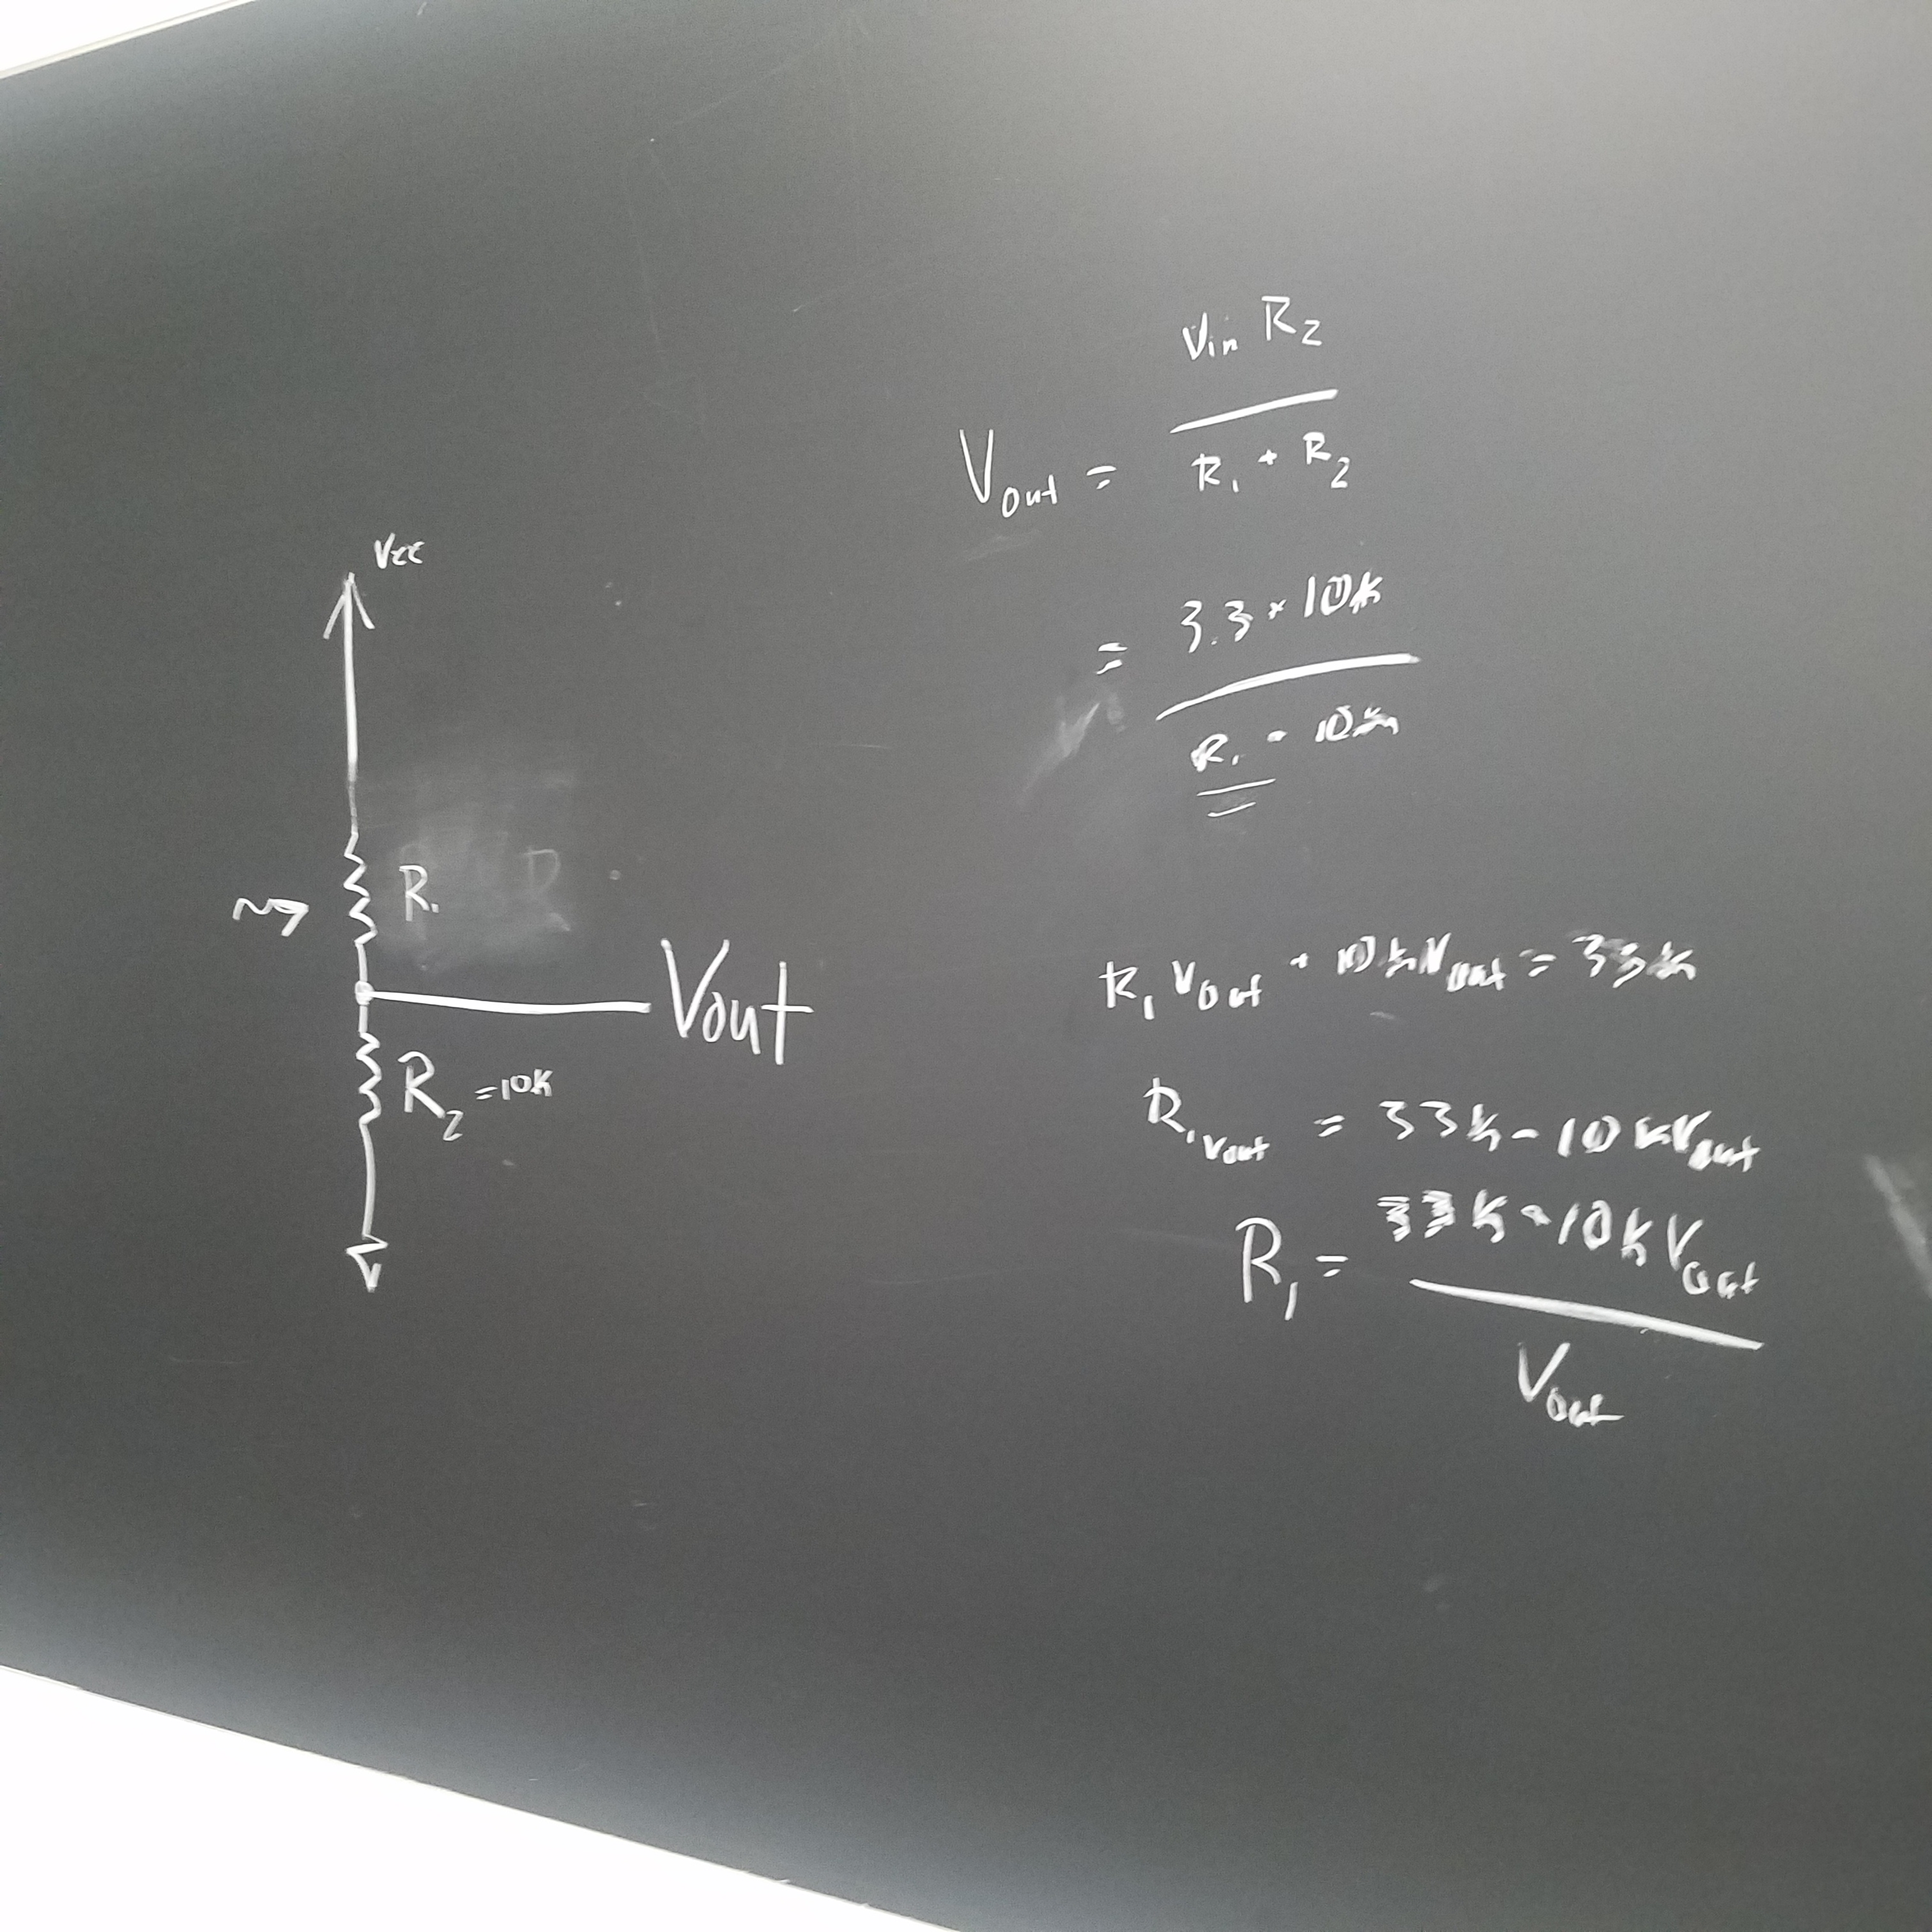 Vcc
R₁
Vout
R₂ = 10k
Vin R₂
Vout = ———
R₁ + R₂
= 3.3 * 10k
———
R₁ + 10k
R₁ Vout + 10k Vout = 33k
R₁ Vout = 33k - 10k Vout
R₁ = 33k - 10k Vout
———
Vout